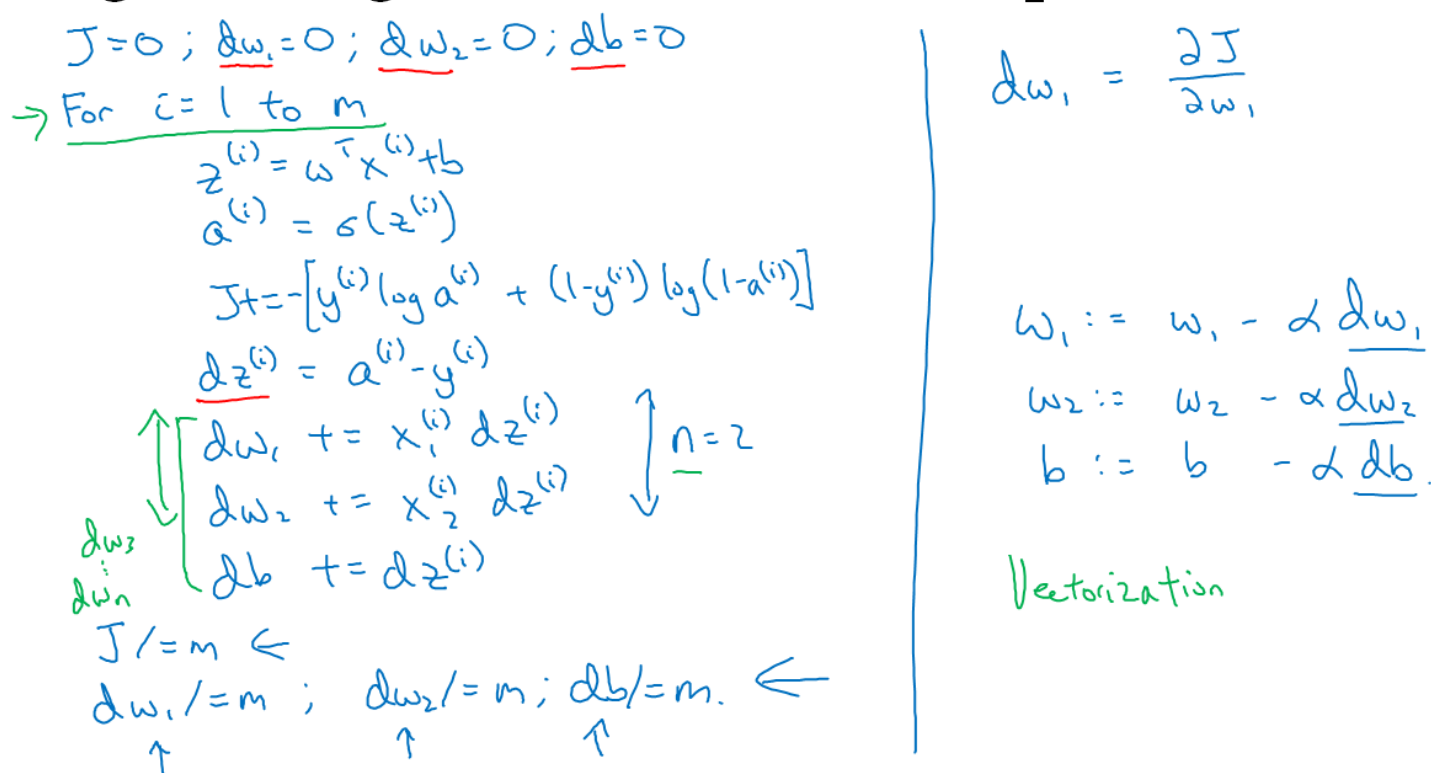 J=0 ; dw₁=0 ; dw₂=0 ; db=0
→ For i = 1 to m
z⁽ⁱ⁾ = ωᵀx⁽ⁱ⁾+b
a⁽ⁱ⁾ = σ(z⁽ⁱ⁾)
J+=-[y⁽ⁱ⁾ log a⁽ⁱ⁾ + (1-y⁽ⁱ⁾) log(1-a⁽ⁱ⁾)]
dz⁽ⁱ⁾ = a⁽ⁱ⁾-y⁽ⁱ⁾
dw₁ += x₁⁽ⁱ⁾ dz⁽ⁱ⁾
dw₂ += x₂⁽ⁱ⁾ dz⁽ⁱ⁾
n=2
db += dz⁽ⁱ⁾
dw₃
⋮
dwn
J/=m ←
dw₁/=m ; dw₂/=m; db/=m. ←
↑ ↑ ↑
dw₁ = ∂J/∂w₁
w₁ := w₁ - α dw₁
w₂ := w₂ - α dw₂
b := b - α db.
Vectorization